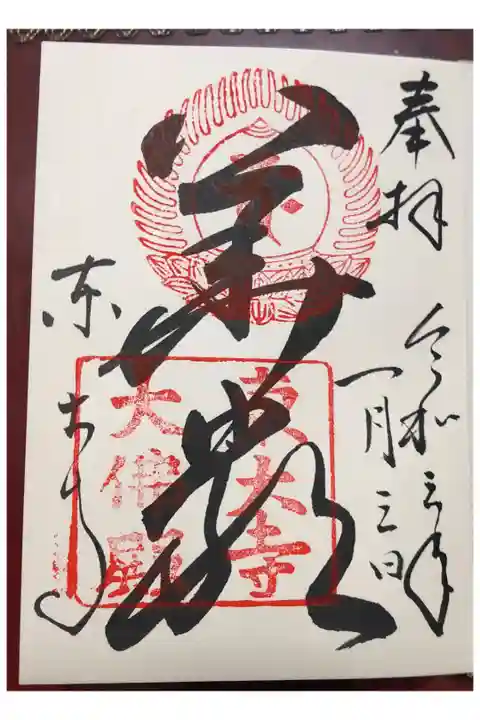 奉拝
令和三年
一月三日
華厳
東大寺
大佛殿
東大寺